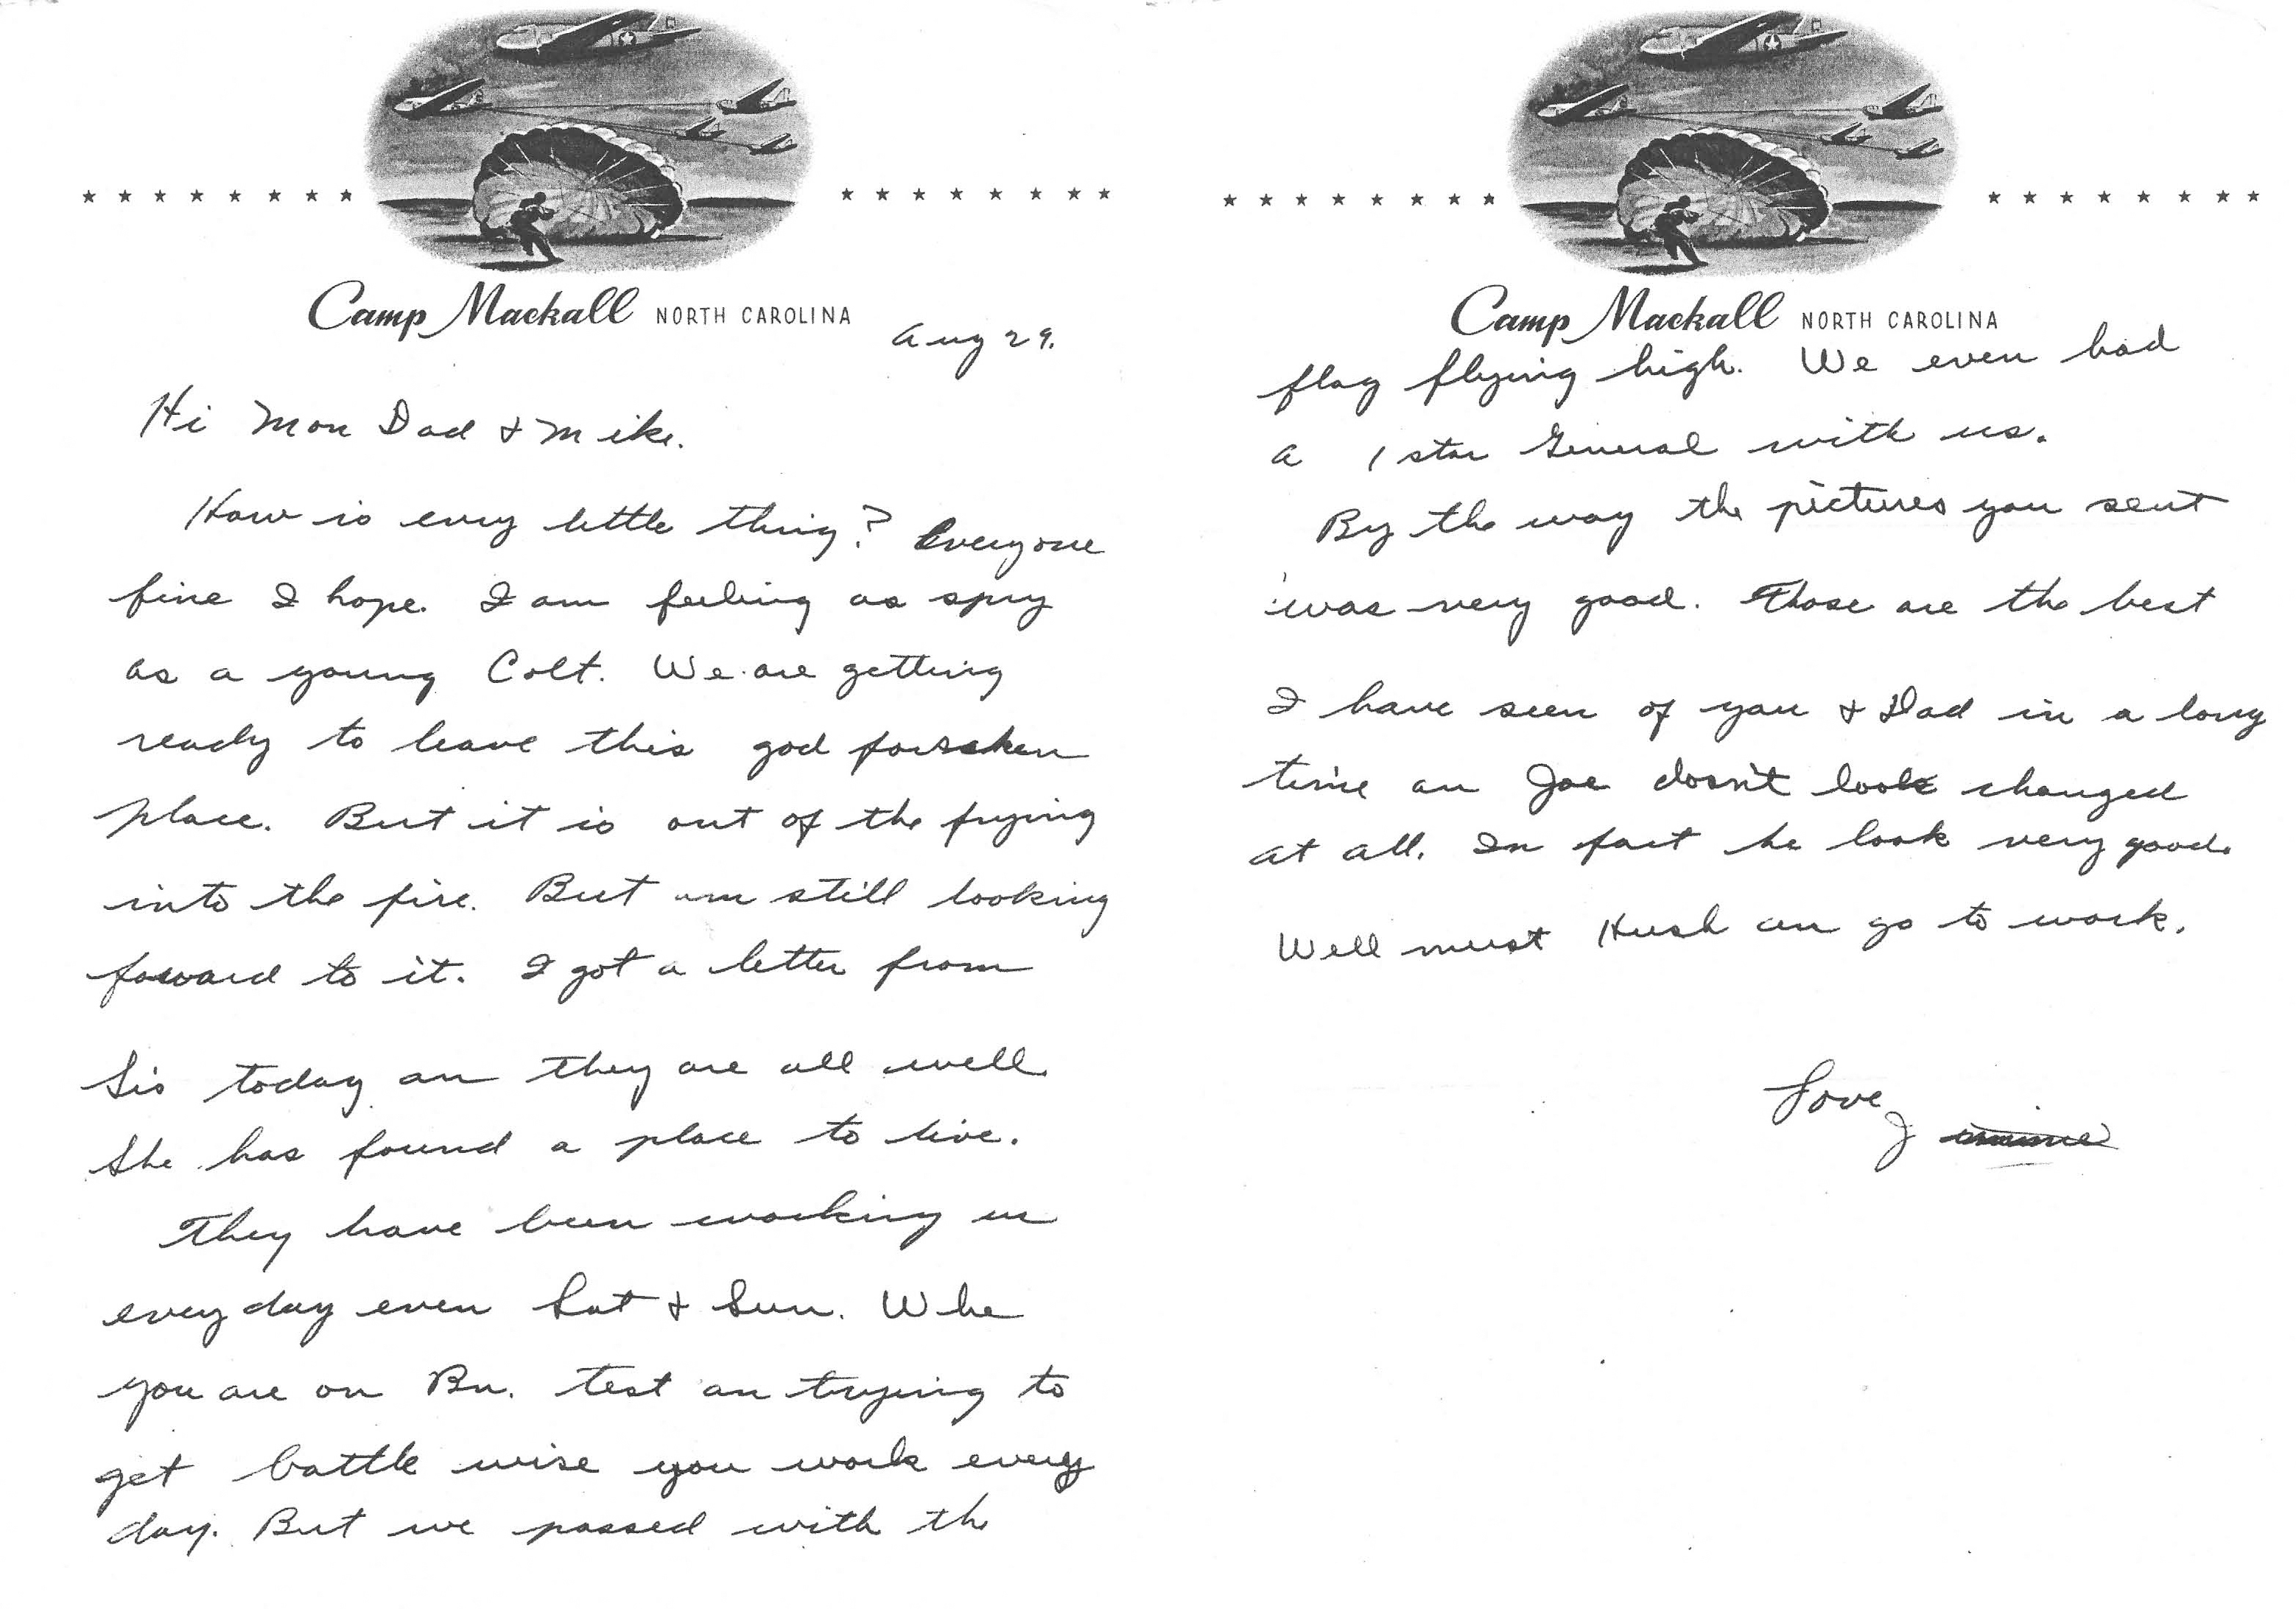 Camp Mackall NORTH CAROLINA
Aug 29.
Hi Mon Dad & Mike.
How is evry little thing? Everyone
fine I hope. I am feeling as spry
as a young Colt. We are getting
ready to leave this god forsaken
place. But it is out of the frying
into the fire. But am still looking
foward to it. I got a letter from
Sis today an they are all well.
She has found a place to live.
They have been working us
every day even Sat & Sun. Whe
you are on Bn. test an trying to
get battle wise you work every
day. But we passed with the
Camp Mackall NORTH CAROLINA
flag flying high. We even had
a 1 star General with us.
By the way the pictures you sent
was very good. Those are the best
I have seen of you & Dad in a long
time an Joe dosn't look changed
at all. In fact he look very good.
Well must Hush an go to work.
Love